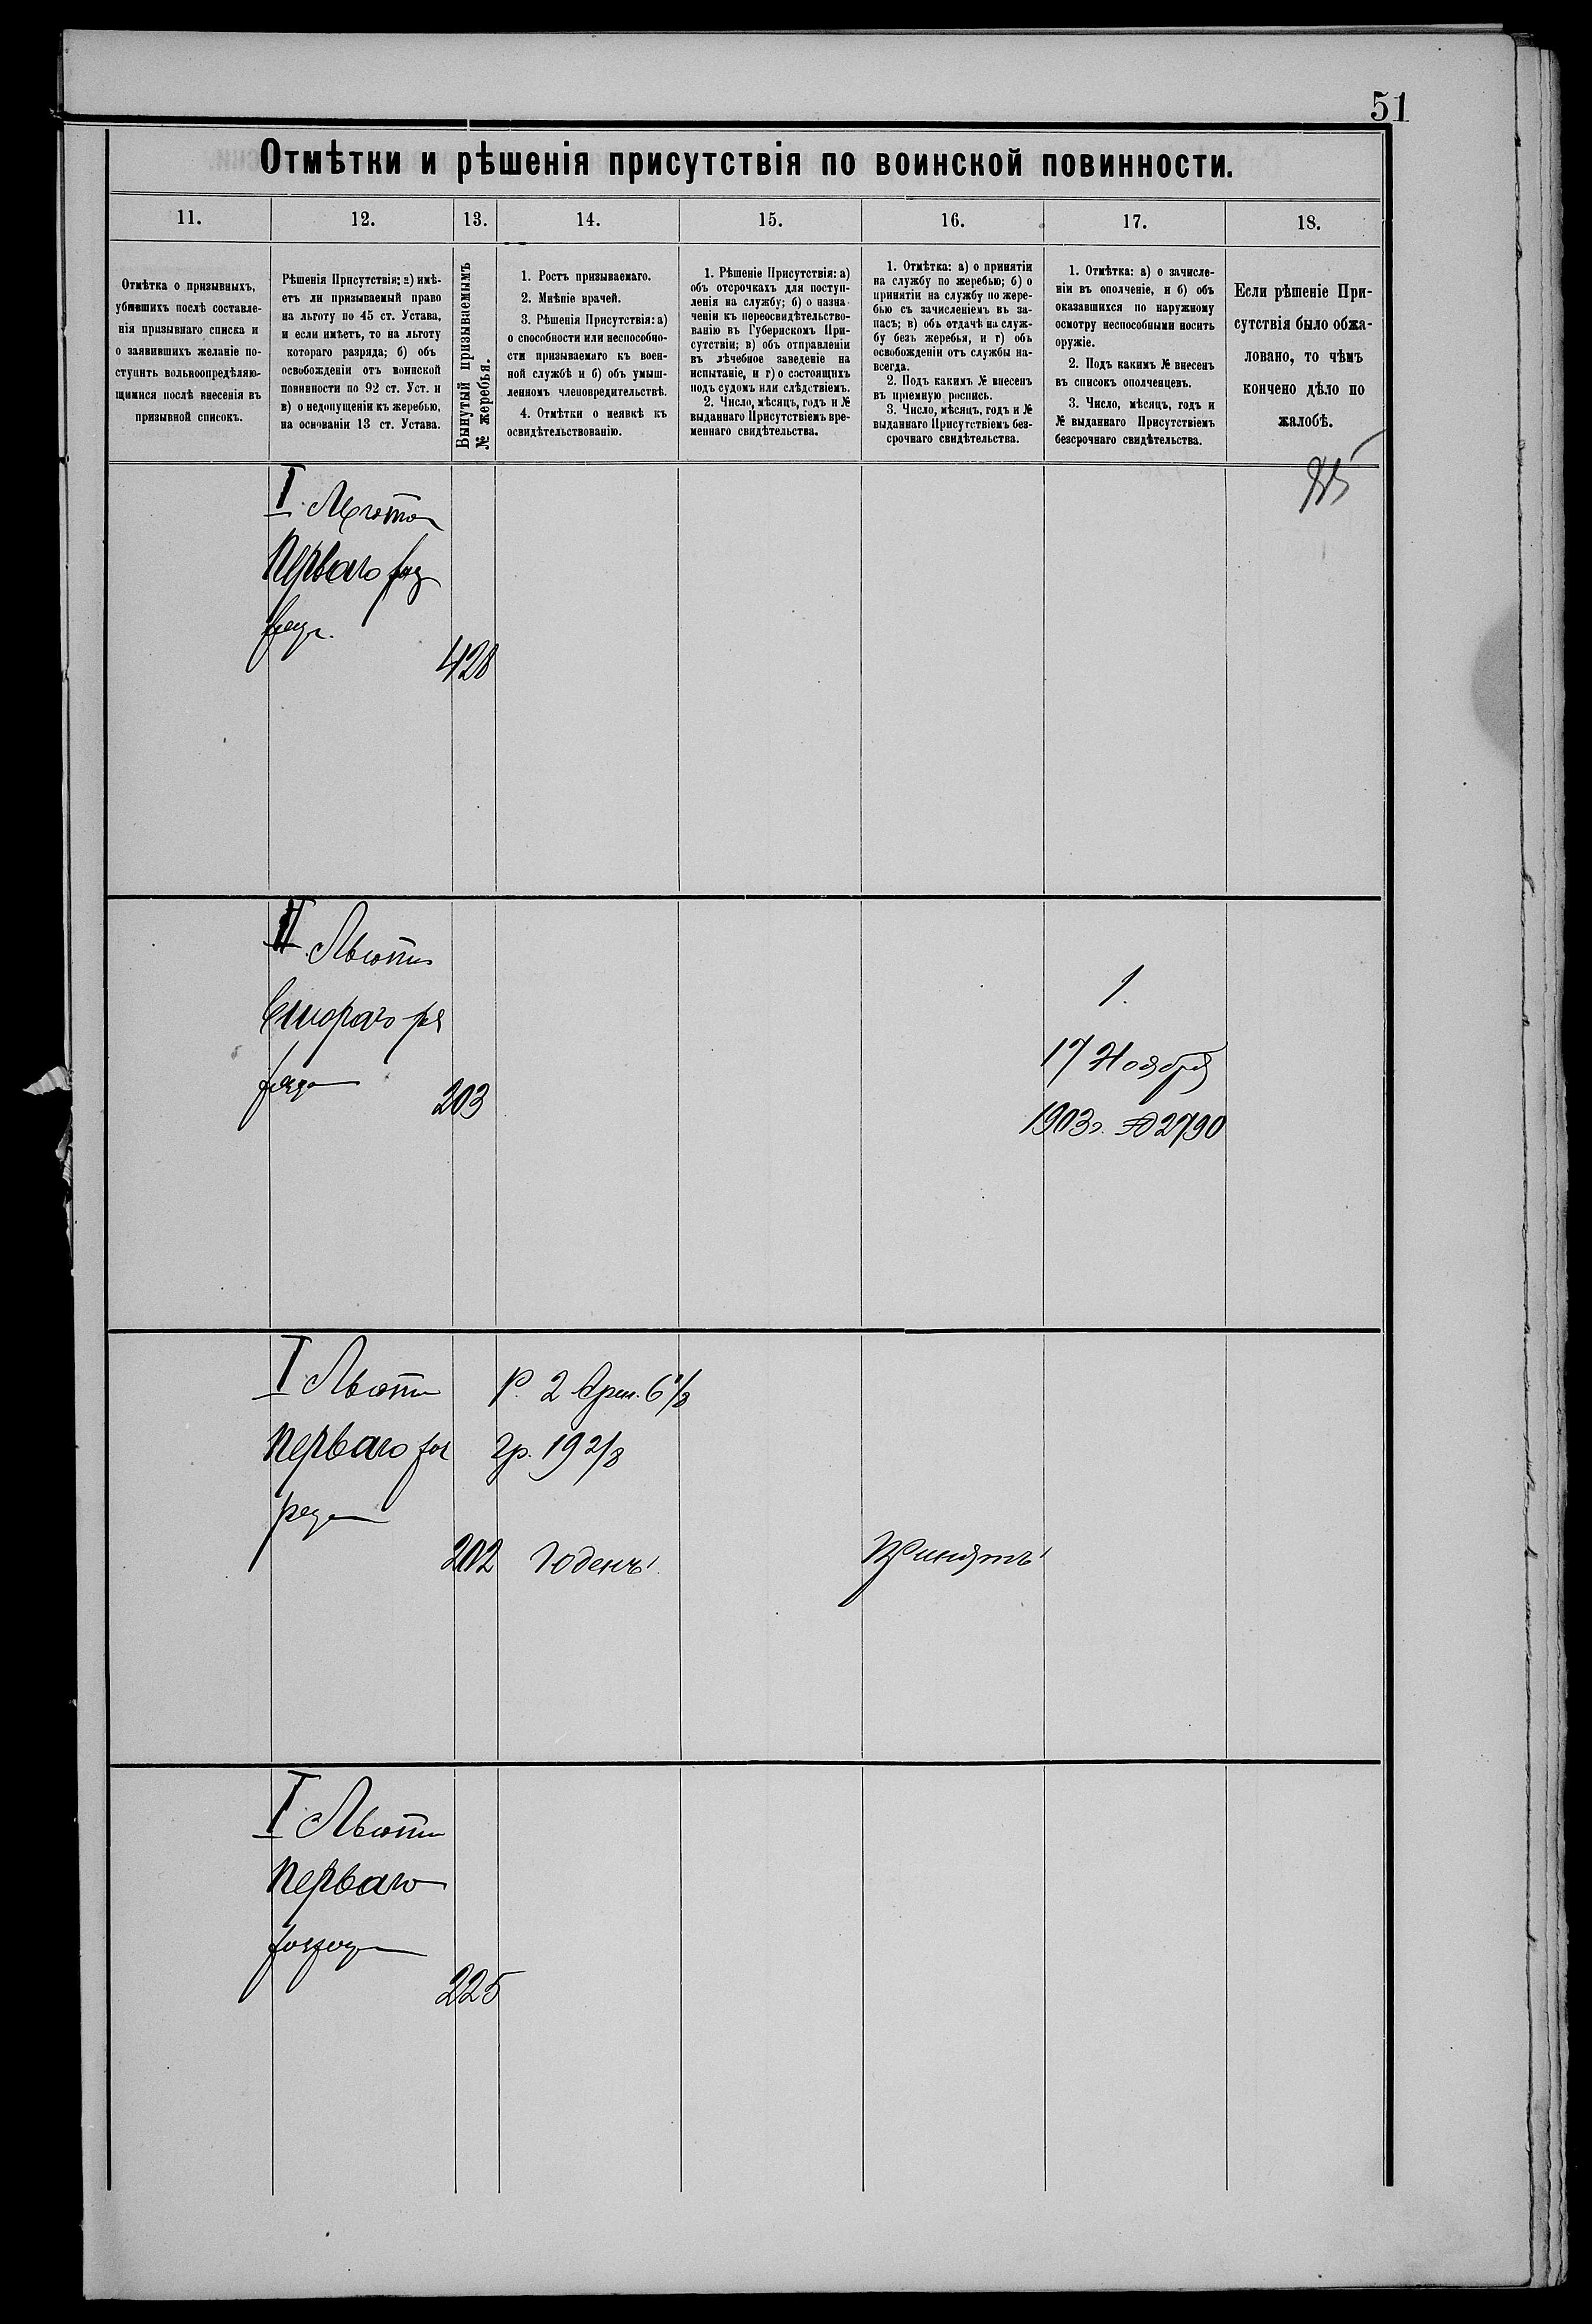 51
Отмѣтки и рѣшенія присутствія по воинской повинности.
11. 12. 13. 14. 15. 16. 17. 18.
Отмѣтка о призывныхъ,
убывшихъ послѣ составле-
нія призывнаго списка и
о заявившихъ желаніе по-
ступить вольноопредѣляю-
щимися послѣ внесенія въ
призывной списокъ.
Рѣшенія Присутствія: а) имѣ-
етъ ли призываемый право
на льготу по 45 ст. Устава,
и если имѣетъ, то на льготу
котораго разряда; б) объ
освобожденіи отъ воинской
повинности по 92 ст. Уст. и
в) о недопущеніи къ жеребью,
на основаніи 13 ст. Устава.
Вынутый призываемымъ
№ жеребья.
1. Ростъ призываемаго.
2. Мнѣніе врачей.
3. Рѣшенія Присутствія: а)
о способности или неспособно-
сти призываемаго къ воен-
ной службѣ и б) объ умыш-
ленномъ членовредительствѣ.
4. Отмѣтки о неявкѣ къ
освидѣтельствованію.
1. Рѣшеніе Присутствія: а)
объ отсрочкахъ для поступ-
ленія на службу; б) о назна-
ченіи къ переосвидѣтельство-
ванію въ Губернскомъ При-
сутствіи; в) объ отправленіи
въ лѣчебное заведеніе на
испытаніе, и г) о состоящихъ
подъ судомъ или слѣдствіемъ.
2. Число, мѣсяцъ, годъ и №
выданнаго Присутствіемъ вре-
меннаго свидѣтельства.
1. Отмѣтка: а) о принятіи
на службу по жеребью; б) о
принятіи на службу по жере-
бью съ зачисленіемъ въ за-
пасъ; в) объ отдачѣ на служ-
бу безъ жеребья, и г) объ
освобожденіи отъ службы на-
всегда.
2. Подъ какимъ № внесенъ
въ пріемную роспись.
3. Число, мѣсяцъ, годъ и №
выданнаго Присутствіемъ без-
срочнаго свидѣтельства.
1. Отмѣтка: а) о зачисле-
ніи въ ополченіе, и б) объ
оказавшихся по наружному
осмотру неспособными носить
оружіе.
2. Подъ какимъ № внесенъ
въ списокъ ополченцевъ.
3. Число, мѣсяцъ, годъ и
№ выданнаго Присутствіемъ
безсрочнаго свидѣтельства.
Если рѣшеніе При-
сутствія было обжа-
ловано, то чѣмъ
кончено дѣло по
жалобѣ.
I Льгота
Перваго раз
ряда
428
II Льгота
Второго ра
ряда
203
1.
17 Ноября
1903 г. № 2790
I Льгота
Перваго раз
ряда
202
Р. 2 Арш. 6 1/8
гр. 19 2/8
Годенъ
Принятъ
I Льгота
Перваго
разряда
225